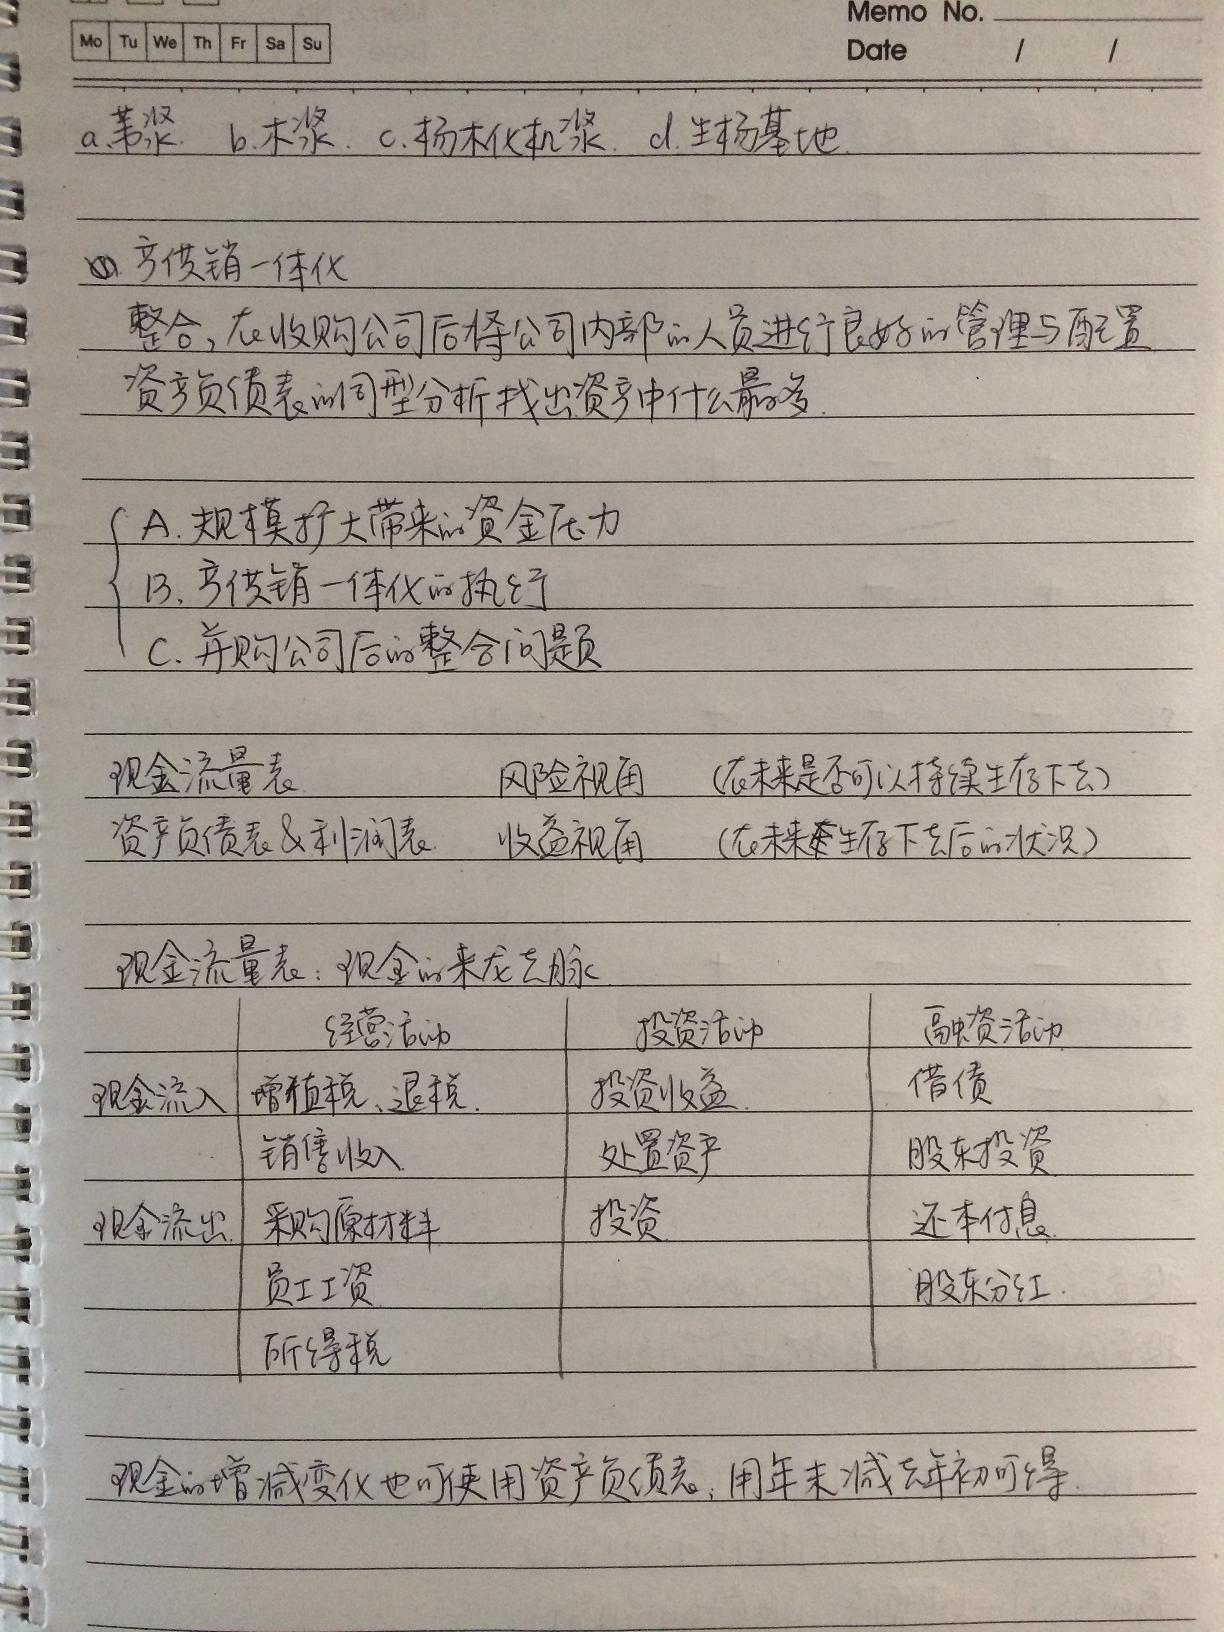 Memo No.
Mo Tu We Th Fr Sa Su
Date / /
a.苇浆. b.木浆. c.杨木化机浆. d.生杨基地.
产供销一体化
整合,在收购公司后将公司内部的人员进行良好的管理与配置
资产负债表的同型分析找出资产中什么最多.
A.规模扩大带来的资金压力
B.产供销一体化的执行
C.并购公司后的整合问题
现金流量表. 风险视角 (在未来是否可以持续生存下去)
资产负债表&利润表. 收益视角 (在未来生存下去后的状况)
现金流量表:现金的来龙去脉
经营活动 投资活动 融资活动
现金流入 增植税、退税. 投资收益. 借债
销售收入 处置资产 股东投资
现金流出. 采购原材料 投资 还本付息.
员工工资 股东分红.
所得税
现金的增减变化也可使用资产负债表,用年末减去年初可得.